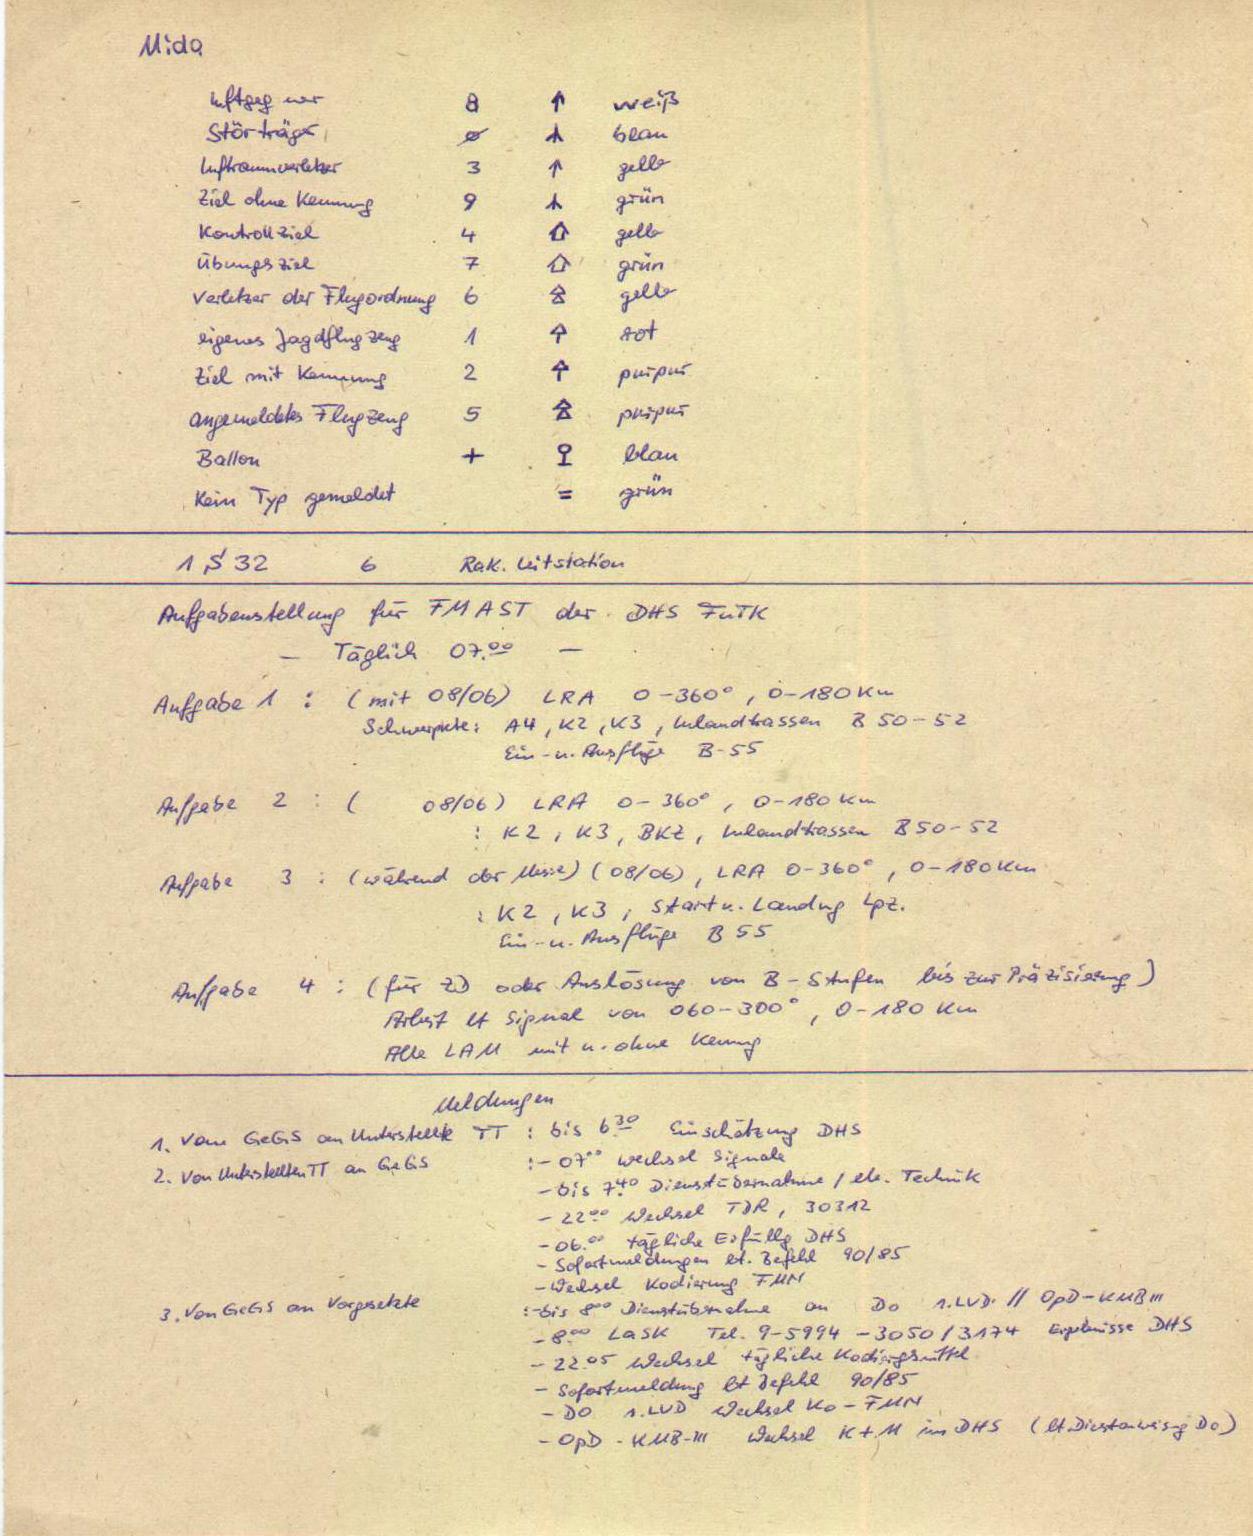 Mida
Luftgegner 8 ↑ weiß
Störträger ø blau
Luftraumverletzer 3 ↑ gelb
Ziel ohne Kennung 9 grün
Kontrollziel 4 ⇧ gelb
Übungsziel 7 ⇧ grün
Verletzer der Flugordnung 6 gelb
eigenes Jagdflugzeug 1 rot
Ziel mit Kennung 2 purpur
angemeldetes Flugzeug 5 purpur
Ballon + blau
Kein Typ gemeldet = grün
1 § 32 6 Rak. Leitstation
Aufgabenstellung für FMAST der DHS FuTK
— Täglich 07.00 —
Aufgabe 1 : (mit 08/06) LRA 0-360°, 0-180 Km
Schwerpkte: A4, K2, K3, Inlandtrassen B 50-52
Ein- u. Ausflüge B-55
Aufgabe 2 : ( 08/06) LRA 0-360°, 0-180 Km
: K2, K3, BKZ, Inlandtrassen B 50-52
Aufgabe 3 : (während der Messe) (08/06), LRA 0-360°, 0-180 Km
: K2, K3, Start u. Landng Lpz.
Ein- u. Ausflüge B 55
Aufgabe 4 : (für ZD oder Auslösung von B-Stufen bis zur Präzisierung)
Arbeit lt Signal von 060-300°, 0-180 Km
Alle LAM mit u. ohne Kennung
Meldungen
1. Vom GeGS an Unterstellte TT : bis 6.30 Einschätzung DHS
2. Von Unterstellten TT an GeGS :- 07.00 Wechsel Signale
- bis 7.40 Dienstübernahme / ele. Technik
- 22.00 Wechsel TDR, 30312
- 06.00 tägliche Erfüllg DHS
- Sofortmeldungen lt. Befehl 90/85
- Wechsel Kodierung FMN
3. Von GeGS an Vorgesetzte :- bis 8.00 Dienstübernahme an Do 1.LVD // OpD-KMB III
- 8.00 LaSK Tel. 9-5994 - 3050/3174 Ergebnisse DHS
- 22.05 Wechsel tägliche Kodiergsmittel
- Sofortmeldung lt Befehl 90/85
- DO 1.LVD Wechsel Ko-FMN
- OpD - KMB-III Wechsel K+M im DHS (lt. Dienstanweisg Do)